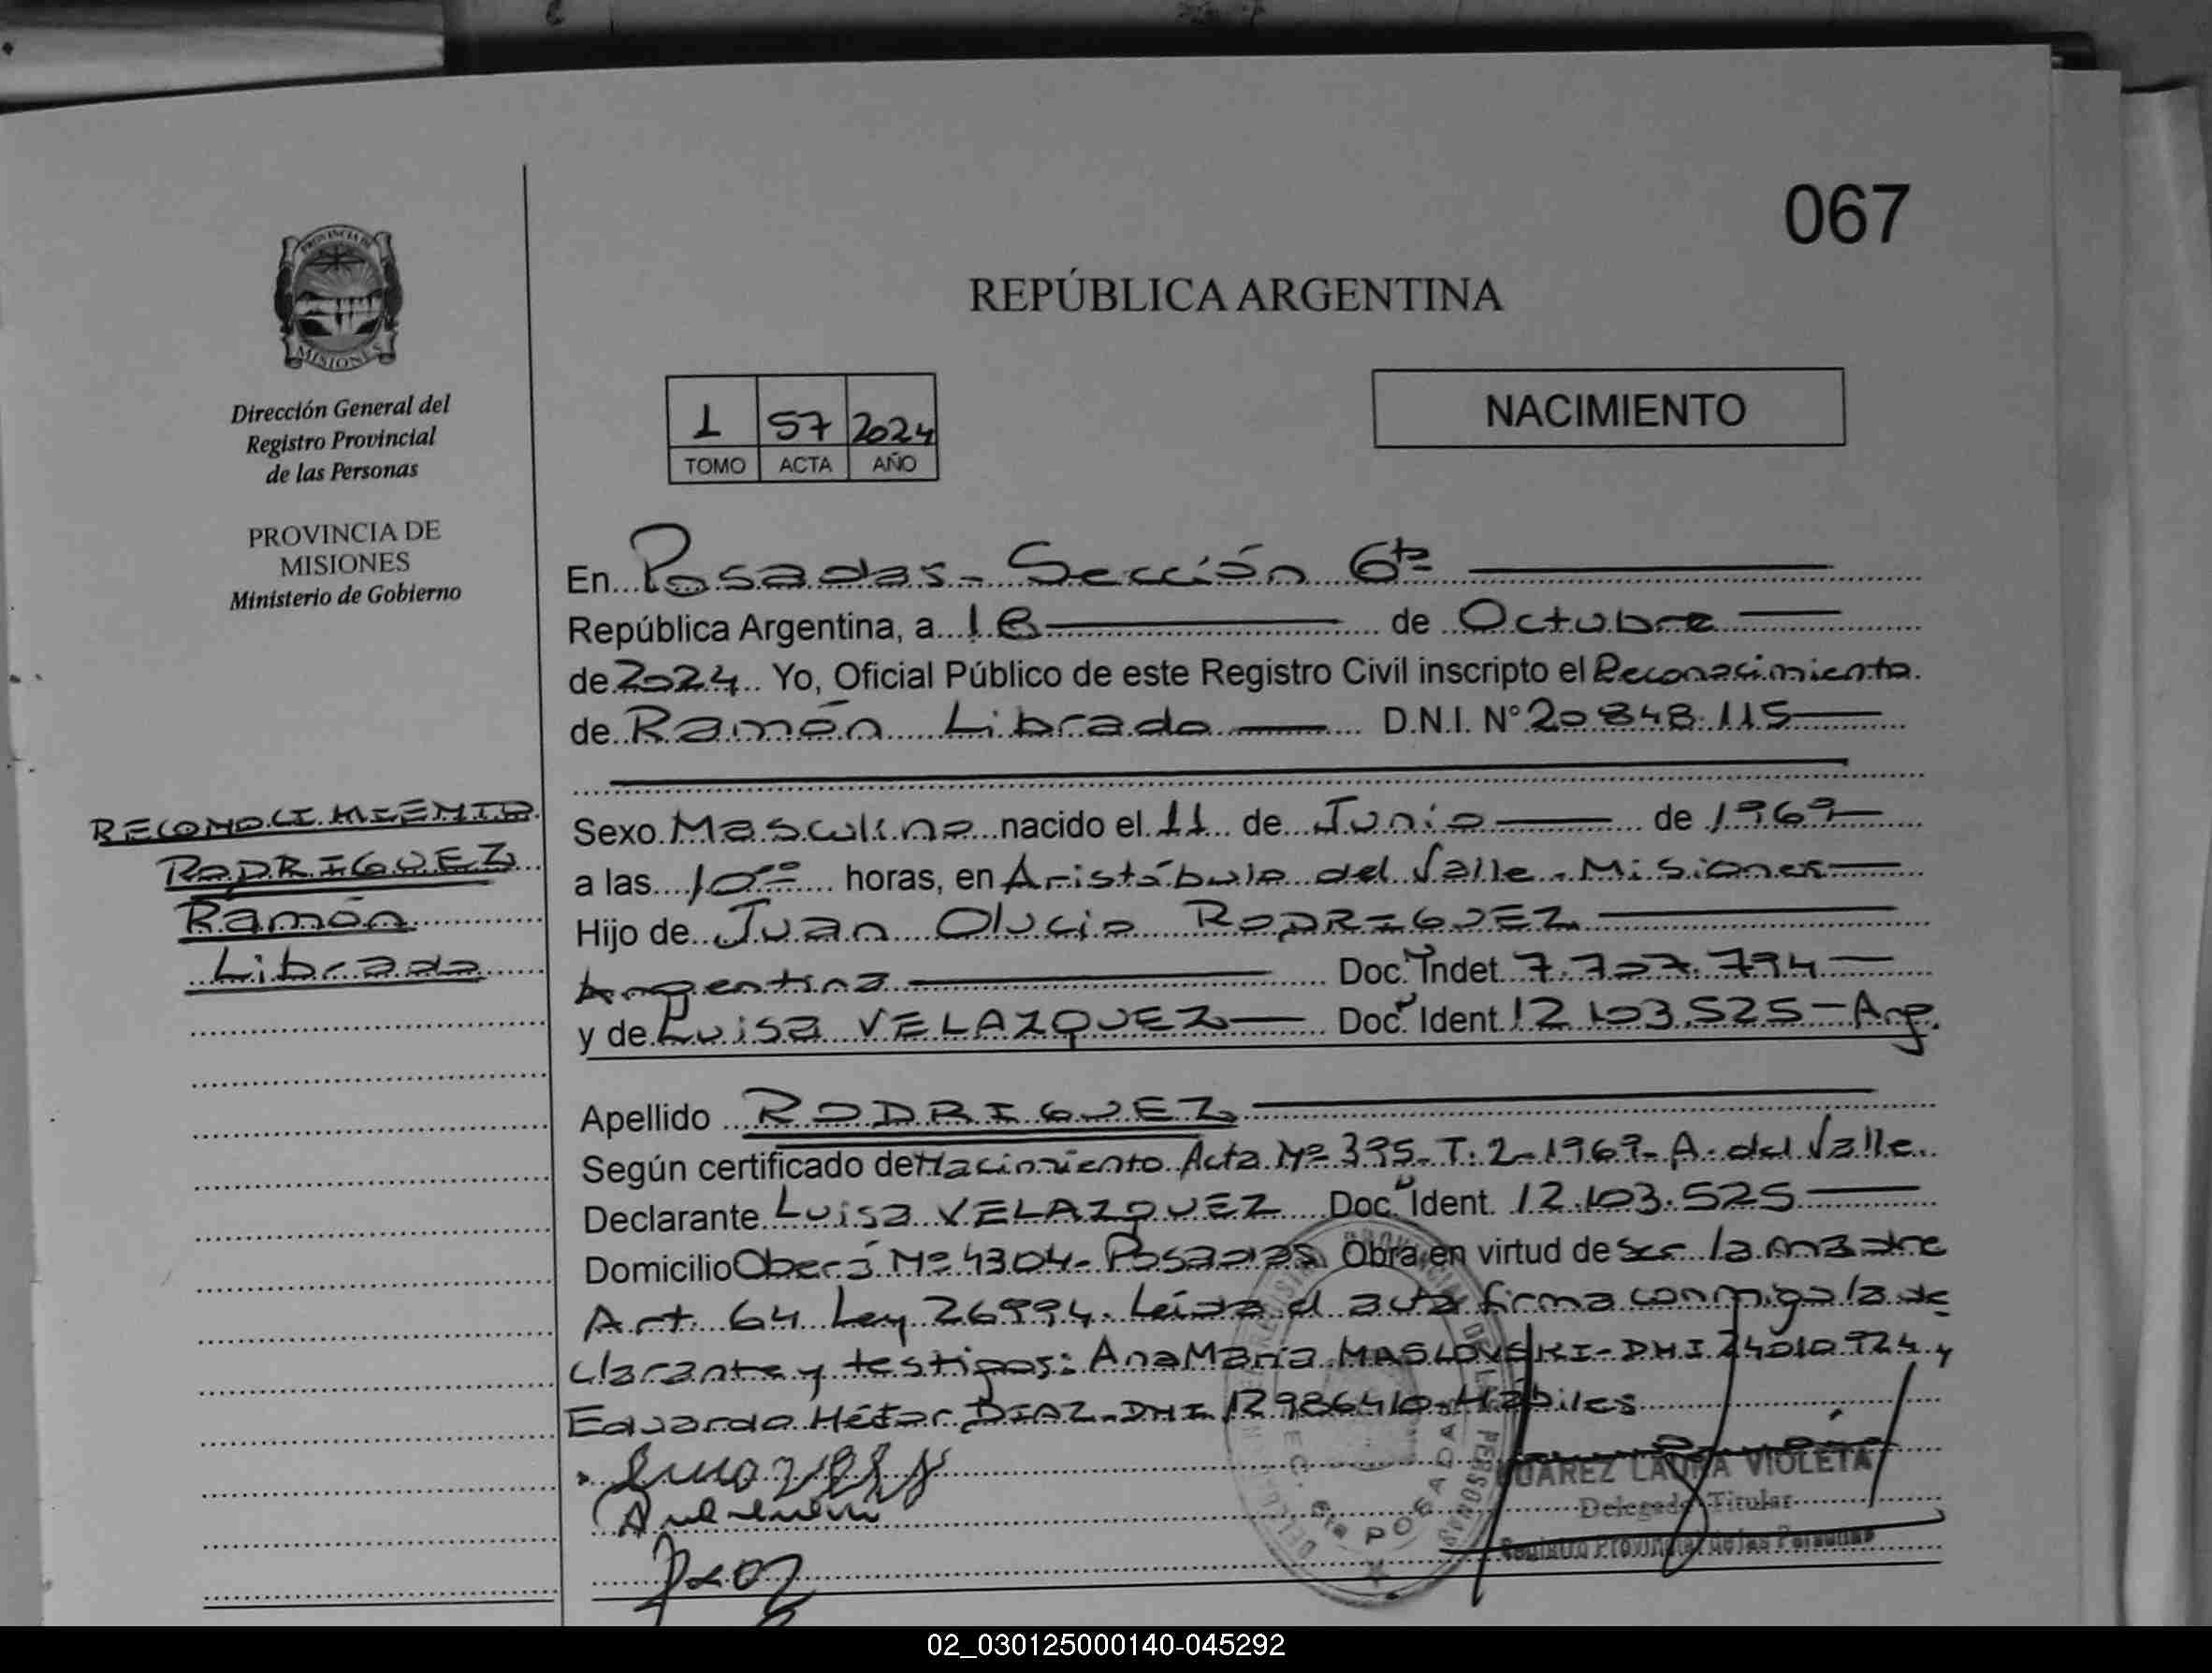 067
PROVINCIA DE
MISIONES
REPÚBLICA ARGENTINA
Dirección General del
Registro Provincial
de las Personas
PROVINCIA DE
MISIONES
Ministerio de Gobierno
1 57 2024
TOMO ACTA AÑO
NACIMIENTO
En Posadas - Sección 6ta
República Argentina, a 18 de Octubre
de 2024 Yo, Oficial Público de este Registro Civil inscripto el Reconocimiento
de Ramón Librado D.N.I. N° 20.848.115
Sexo Masculino nacido el 11 de Junio de 1969
a las 10:00 horas, en Aristóbulo del Valle - Misiones
Hijo de Juan Olucio RODRIGUEZ
Argentina Doc. Indet. 7.707.794
y de Luisa VELAZQUEZ Doc. Ident. 12.103.525 - Arg.
Apellido RODRIGUEZ
Según certificado de Nacimiento Acta Nº 395 - T: 2 - 1969 - A. del Valle
Declarante Luisa VELAZQUEZ Doc. Ident. 12.103.525
Domicilio Oberá Nº 4304 - Posadas Obra en virtud de ser la madre
Art. 64 Ley 26994. Leída el acta firma conmigo la de
clarante y testigos: Ana María MASLOVSKI - DNI 24010924 y
Eduardo Héctor DIAZ - DNI 12986410 - Hábiles
RECONOCIMIENTO
RODRIGUEZ
Ramón
Librado
JUAREZ LAURA VIOLETA
Delegada Titular
Registro Provincial de las Personas
02_030125000140-045292